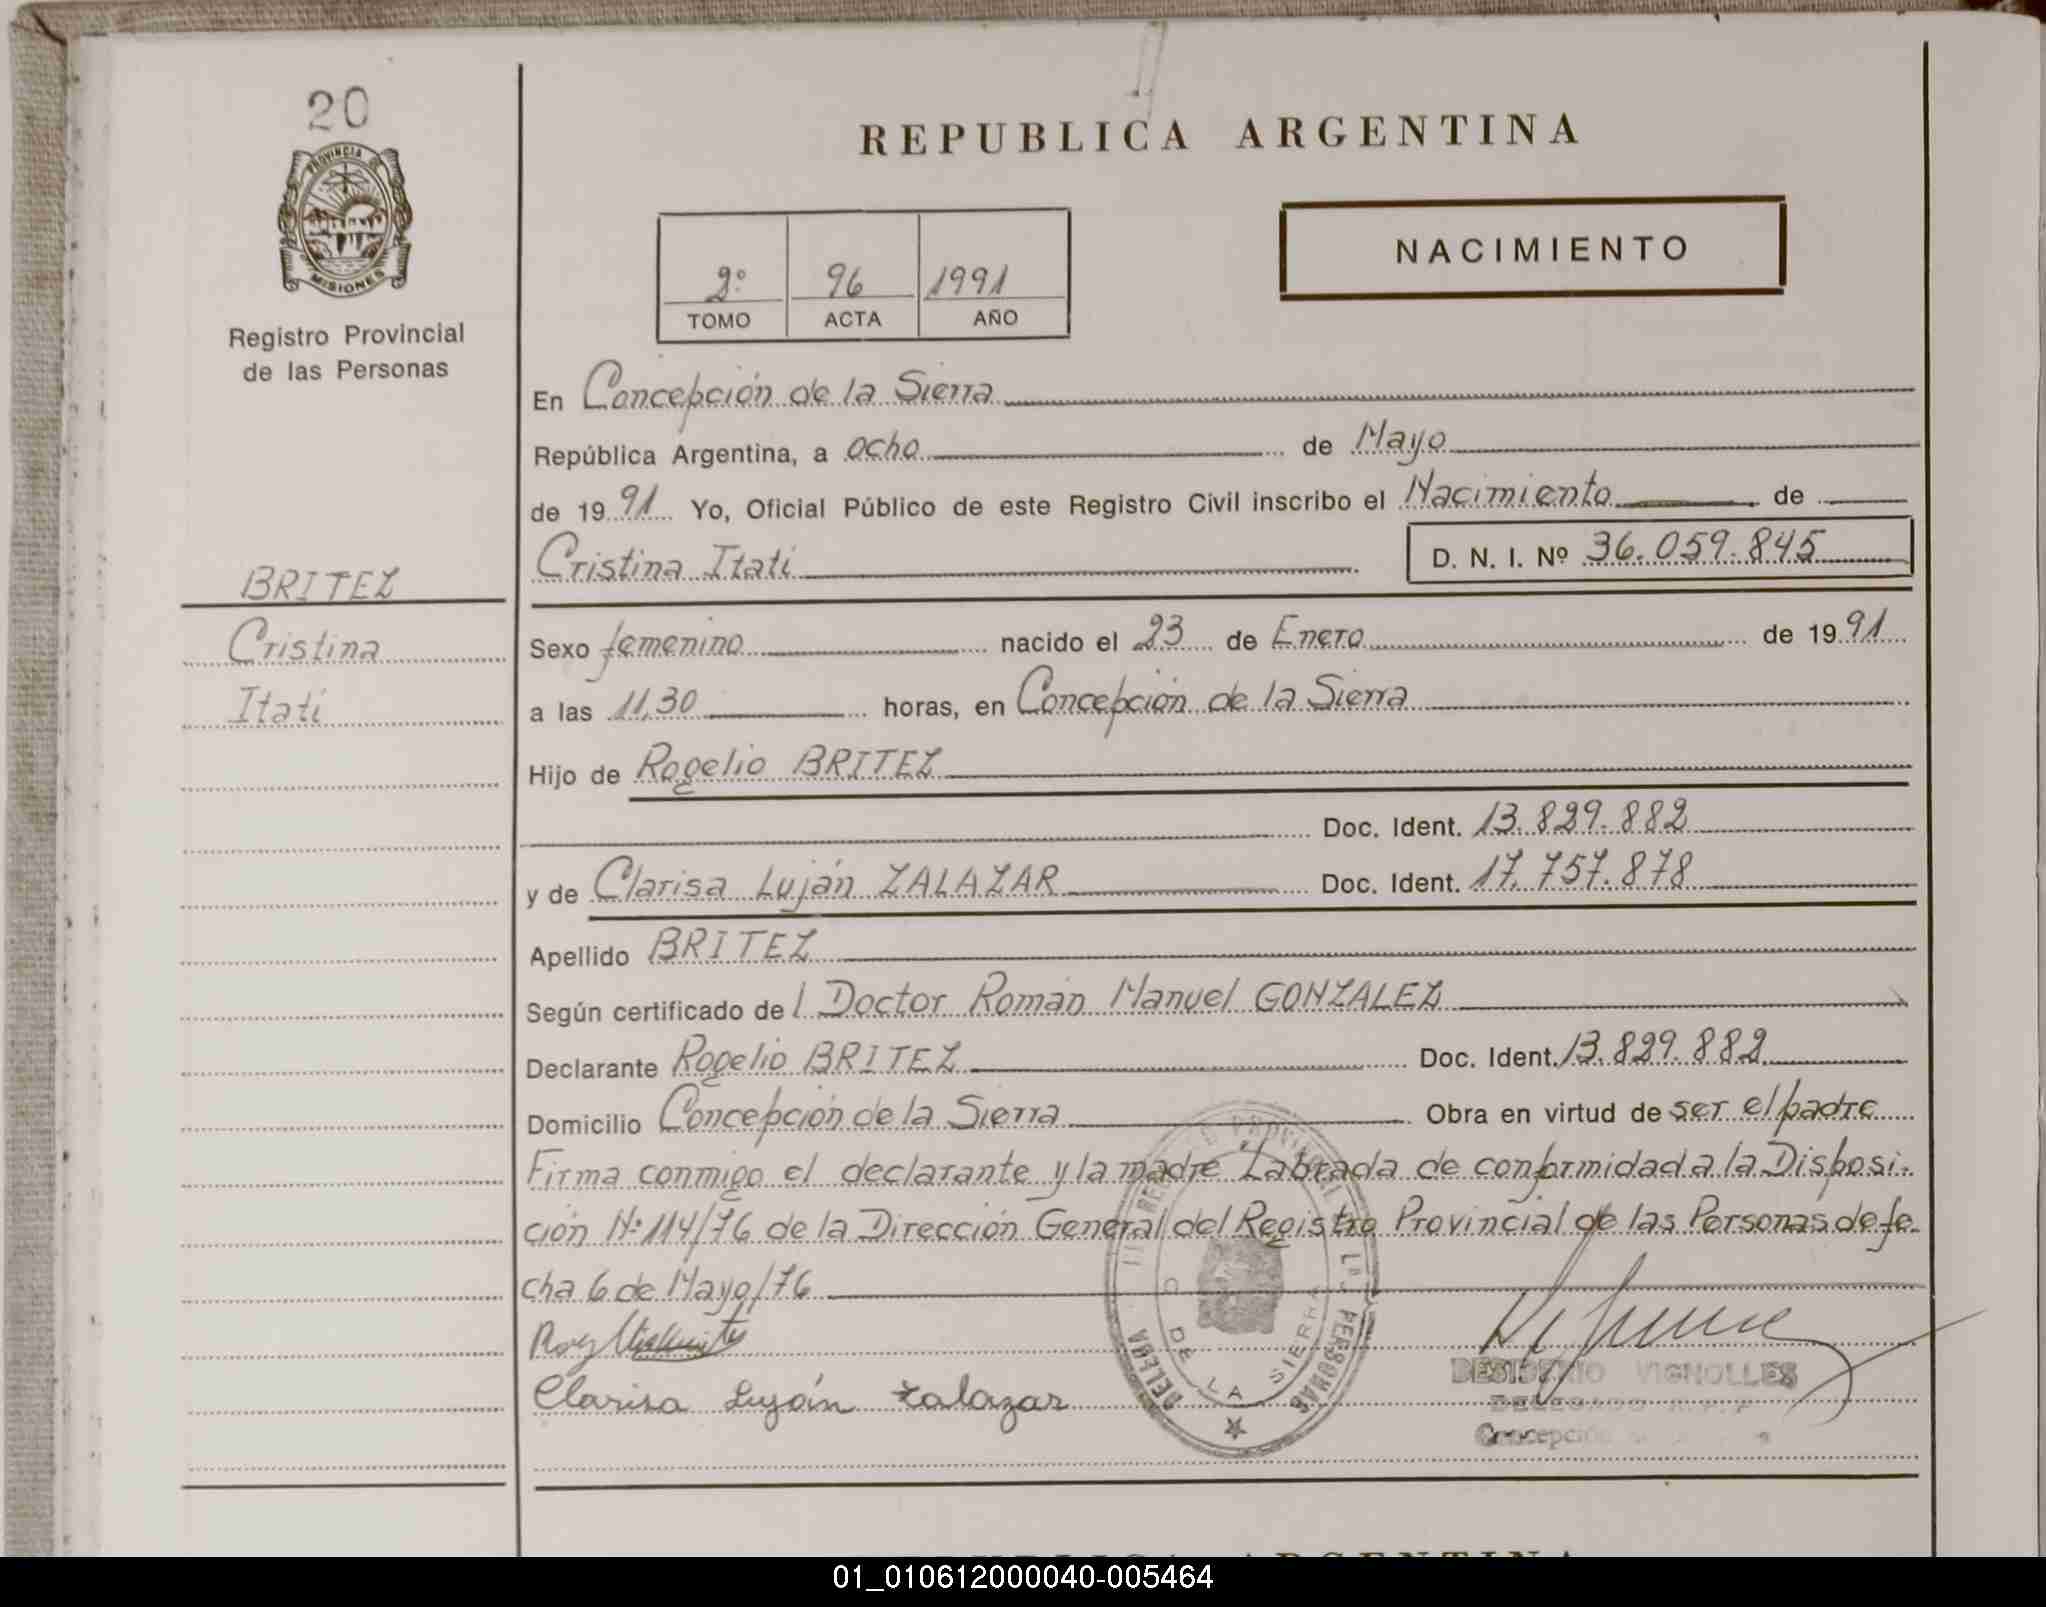 20
PROVINCIA DE
MISIONES
Registro Provincial
de las Personas
REPUBLICA ARGENTINA
NACIMIENTO
2º 96 1991
TOMO ACTA AÑO
En Concepción de la Sierra
República Argentina, a ocho de Mayo
de 1991 Yo, Oficial Público de este Registro Civil inscribo el Nacimiento de
Cristina Itatí D. N. I. Nº 36.059.845
BRITEZ
Cristina
Itatí
Sexo femenino nacido el 23 de Enero de 1991
a las 11,30 horas, en Concepción de la Sierra
Hijo de Rogelio BRITEZ
Doc. Ident. 13.829.882
y de Clarisa Luján ZALAZAR Doc. Ident. 17.757.878
Apellido BRITEZ
Según certificado de l Doctor Román Manuel GONZALEZ
Declarante Rogelio BRITEZ Doc. Ident. 13.829.882
Domicilio Concepción de la Sierra Obra en virtud de ser el padre
Firma conmigo el declarante y la madre Labrada de conformidad a la Disposi-
ción Nº 114/76 de la Dirección General del Registro Provincial de las Personas de fe-
cha 6 de Mayo/76
Clarisa Luján Zalazar
DE LA SIERRA
PERSONAS
DESIDERIO VIGNOLLES
DELEGADO R.P.P
Concepción
REPUBLICA ARGENTINA
01_010612000040-005464